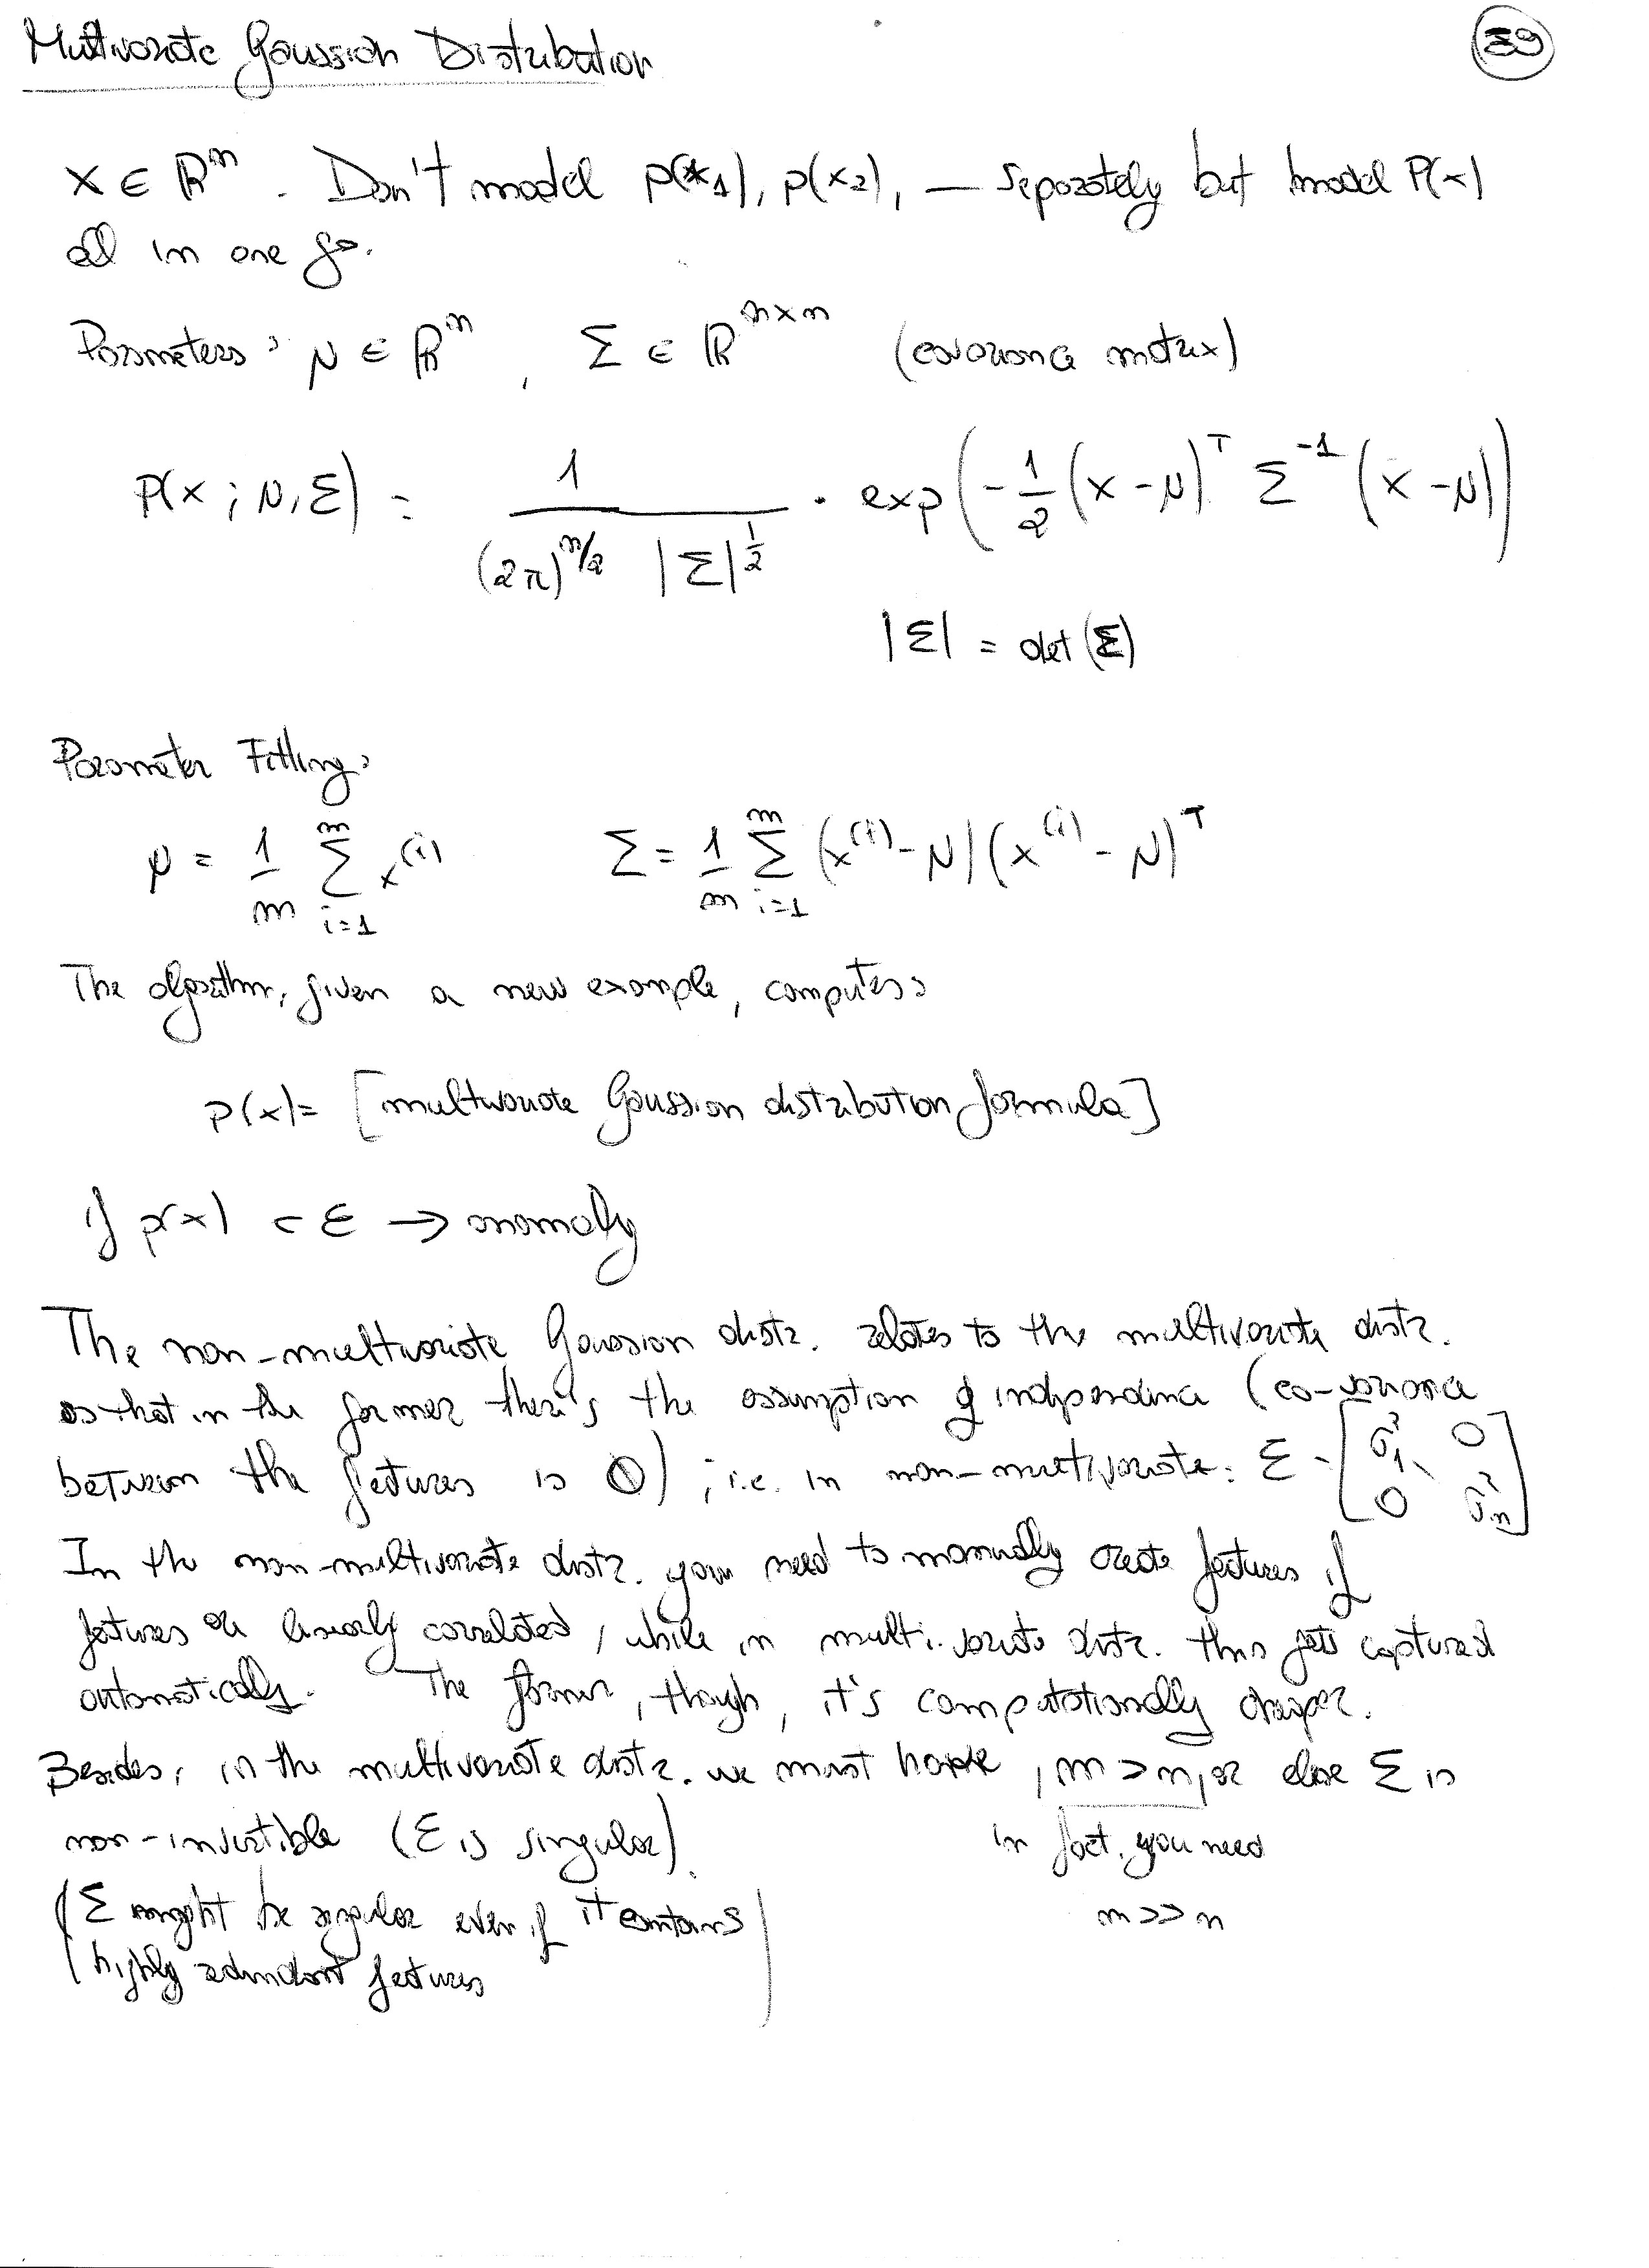 Multivariate Gaussian Distribution
39
x ∈ ℝⁿ. Don't model p(x₁), p(x₂), — separately but model P(x)
all in one go.
Parameters: μ ∈ ℝⁿ, Σ ∈ ℝⁿˣⁿ (covariance matrix)
P(x; μ, Σ) = 1 / ((2π)^(n/2) |Σ|^(1/2)) · exp(-1/2 (x-μ)ᵀ Σ⁻¹ (x-μ))
|Σ| = det(Σ)
Parameter Fitting:
μ = 1/m Σ_{i=1}^{m} x^(i)    Σ = 1/m Σ_{i=1}^{m} (x^(i) - μ)(x^(i) - μ)ᵀ
The algorithm, given a new example, computes:
p(x) = [multivariate Gaussian distribution formula]
if p(x) < ε → anomaly
The non-multivariate Gaussian distr. relates to the multivariate distr.
as that in the former there's the assumption of independence (co-variance
between the features is 0), i.e. in non-multivariate: Σ = [σ₁² 0 0 σₙ²]
In the non-multivariate distr. you need to manually create features if
features are linearly correlated, while in multi-variate distr. this gets captured
automatically. The former, though, it's computationally cheaper.
Besides, in the multivariate distr. we must have, m > n, or else Σ is
non-invertible (Σ is singular). in fact, you need
m >> n
(Σ might be singular even if it contains
highly redundant features)